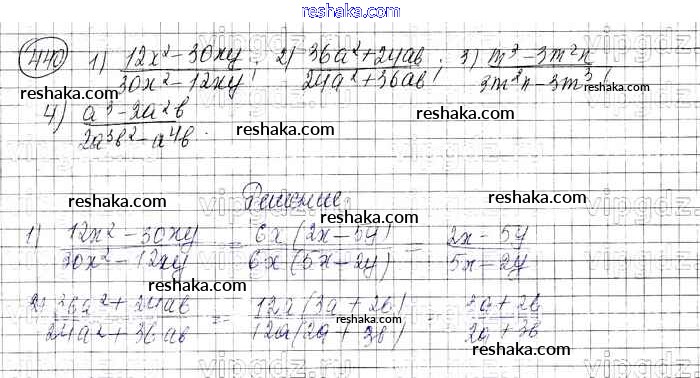 reshaka.com
440 1) 12x² - 30xy / 30x² - 12xy ; 2) 36a² + 24ab / 24a² + 36ab ; 3) m³ - 3m²n / 3m²n - 3m³ ;
reshaka.com reshaka.com reshaka.com
4) a³ - 2a²b / 2a³b² - a⁴b .
reshaka.com reshaka.com
Решение
reshaka.com reshaka.com reshaka.com
1) 12x² - 30xy / 30x² - 12xy = 6x(2x - 5y) / 6x(5x - 2y) = 2x - 5y / 5x - 2y
2) 36a² + 24ab / 24a² + 36ab = 12a(3a + 2b) / 12a(2a + 3b) = 3a + 2b / 2a + 3b
reshaka.com reshaka.com reshaka.com
reshaka.com